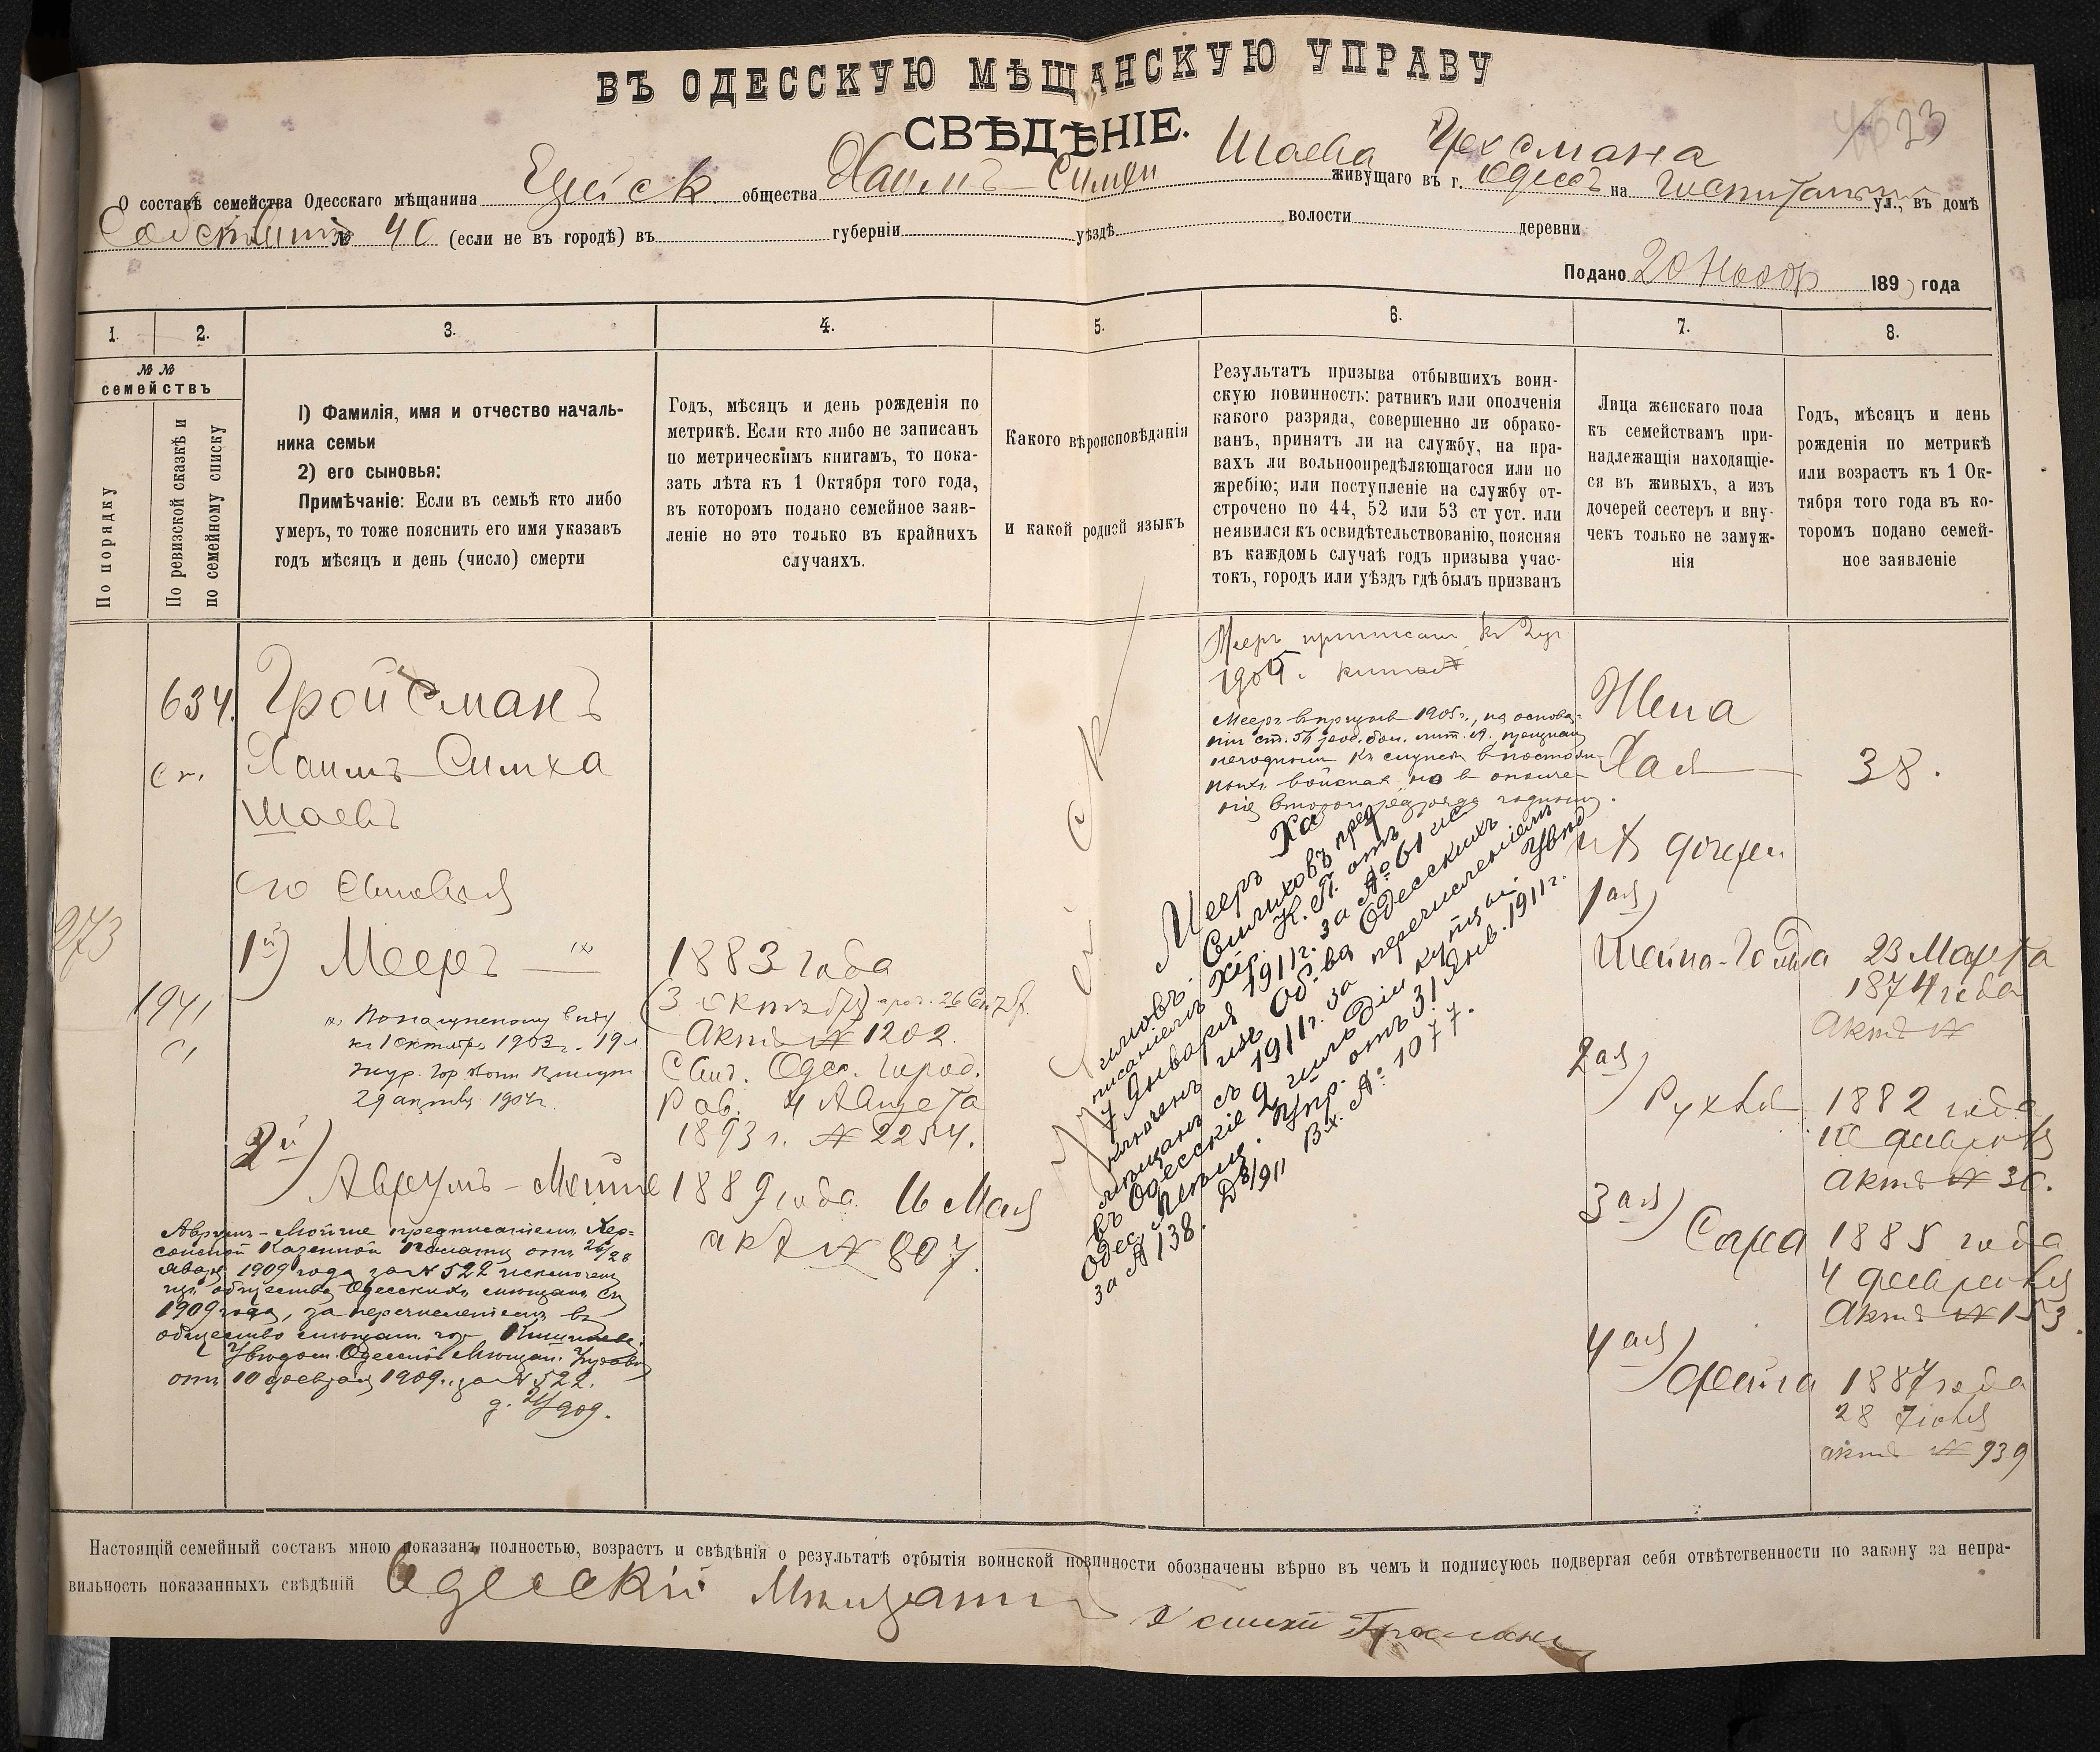 ВЪ ОДЕССКУЮ МѢЩАНСКУЮ УПРАВУ
СВѢДѢНІЕ.
23
О составѣ семейства Одесскаго мѣщанина Еврейск общества Хаимъ-Симхи Шаева Гросмана живущаго въ г. Одессѣ на Госпитальной ул., въ домѣ
№ 40 (если не въ городѣ) въ губерніи уѣздѣ волости деревни
Подано 20 Ноябр 189 года
1. 2. 3. 4. 5. 6. 7. 8.
№ №
семействъ
По порядку
По ревизской сказкѣ и
по семейному списку
1) Фамилія, имя и отчество началь-
ника семьи
2) его сыновья:
Примѣчаніе: Если въ семьѣ кто либо
умеръ, то тоже пояснить его имя указавъ
годъ мѣсяцъ и день (число) смерти
Годъ, мѣсяцъ и день рожденія по
метрикѣ. Если кто либо не записанъ
по метрическимъ книгамъ, то пока-
зать лѣта къ 1 Октября того года,
въ которомъ подано семейное заяв-
леніе но это только въ крайнихъ
случаяхъ.
Какого вѣроисповѣданія
и какой родной языкъ
Результатъ призыва отбывшихъ воин-
скую повинность: ратникъ или ополченія
какого разряда, совершенно ли обрако-
ванъ, принятъ ли на службу, на пра-
вахъ ли вольноопредѣляющагося или по
жребію; или поступленіе на службу от-
строчено по 44, 52 или 53 ст уст. или
неявился къ освидѣтельствованію, поясняя
въ каждомъ случаѣ годъ призыва учас-
токъ, городъ или уѣздъ гдѣ былъ призванъ
Лица женскаго пола
къ семействамъ при-
надлежащія находящіе-
ся въ живыхъ, а изъ
дочерей сестеръ и вну-
чекъ только не замуж-
нія
Годъ, мѣсяцъ и день
рожденія по метрикѣ
или возрастъ къ 1 Ок-
тября того года въ ко-
торомъ подано семей-
ное заявленіе
634.
Гройсманъ
Хаимъ Симха
Шаевъ
его сыновья
273
1941
1й) Мееръ
къ 1 октября 1903 г. 19 л
29 1904 г.
1883 года
(3 октября) 26 Сент.
Актъ № 1202.
Одес. Город.
Рав. 4 Августа
1893 г. № 2254.
2й)
Аврумъ-Мойше 1889 года 16 Мая
акт № 807.
Аврумъ-Мойше предписаніемъ Хер-
сонской Казенной Палаты отъ 26/28
Января 1909 года за № 522 исключенъ
изъ общества Одесскихъ мѣщанъ съ
1909 года, за перечисленіемъ въ
общество мѣщанъ гор. Кишинева.
Одесской Мѣщан. Управы
отъ 10 февраля 1909 г. за № 522.
Мееръ приписанъ къ
1904 г.
Мееръ въ призывъ 1905 г., на основа-
ніи ст. лит. А. признанъ
негоднымъ къ службѣ въ постоян-
ныхъ войскахъ, но въ ополче-
ніе второго разряда годнымъ.
Мееръ Ха
имовъ-Симховъ пред
писаніемъ Хер. К. П. отъ
7 Января 1911 г. за № 61 ис
ключенъ изъ Об-ва Одесскихъ
мѣщанъ съ 1911 г. за перечисленіемъ
въ Одесскіе 2 гильдіи купцы. Увѣд
Одес. Мѣщ. Упр. отъ 31 Янв. 1911 г.
за № 138. Вх. № 1077.
Жена
Хая 38.
и дочери
1ая)
Шейна-Голда 23 Марта
1874 года
Актъ №
2ая)
Рухля 1882 года
10 февраля
Актъ № 30.
3ая)
Сара 1885 года
4 февраля
Актъ № 153.
4ая)
Фейга 1887 года
28 Іюля
актъ № 939
Настоящій семейный составъ мною показанъ полностью, возрастъ и свѣдѣнія о результатѣ отбытія воинской повинности обозначены вѣрно въ чемъ и подписуюсь подвергая себя отвѣтственности по закону за непра-
вильность показанныхъ свѣдѣній Одесскій Мѣщанинъ